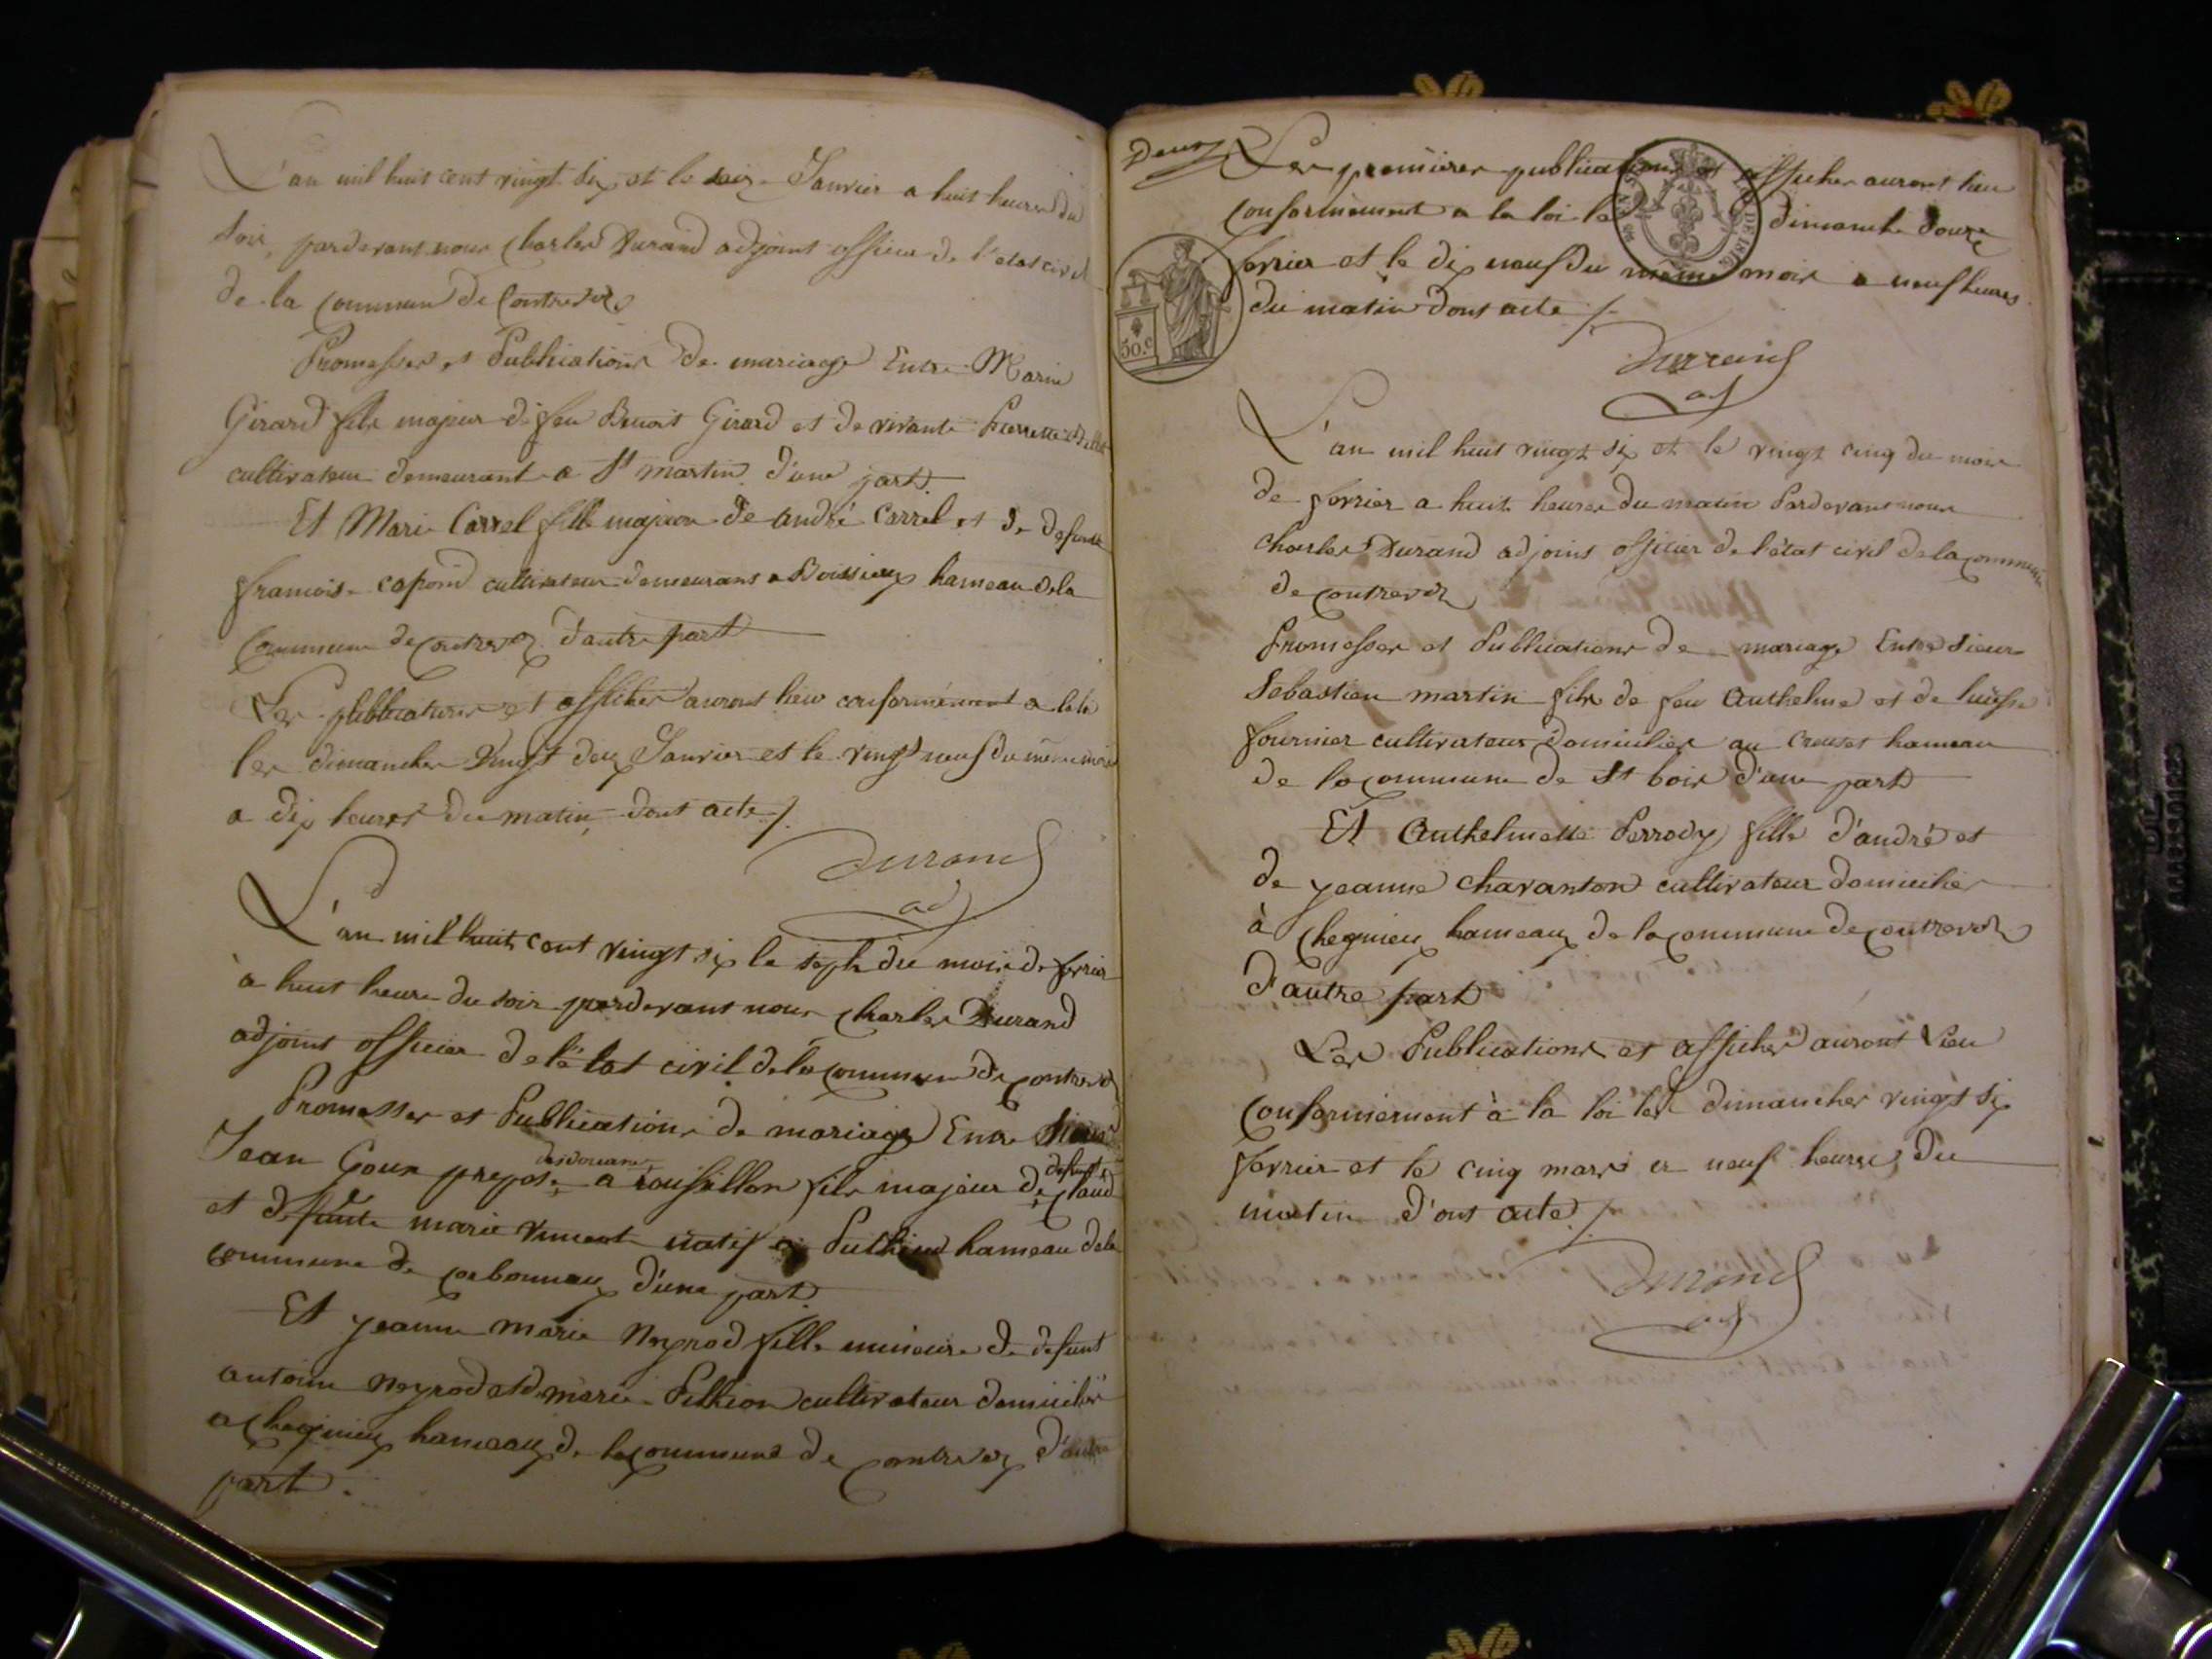 L'an mil huit cent vingt six et le seize Janvier a huit heures du
soir, pardevant nous Charles Durand adjoint officier de l'etat civil
de la commune de Contrevoz
Promesses et Publications de mariage Entre Marin
Girard fils majeur de feu Benoit Girard et de vivante Pierrette
cultivateur demeurant a St martin d'une part.
Et Marie Carrel fille majeure de andré Carrel et de defunte
francoise caponod cultivateur demeurans a Boissieux hameau de la
Commune de contrevoz d'autre part
Les publications et affiches auront lieu conformément a la loi
les dimanches Vingt deux Janvier et le vingt neuf du même mois
a dix heures du matin, dont acte /.
Durand
adj
L'an mil huit cent vingt six le sept du mois de fevrier
à huit heures du soir pardevant nous Charles Durand
adjoint officier de l'état civil de la commune de contrevoz
Promesses et Publications de mariage Entre Sieur
des douanes defunt
Jean Goux preposé a roussillon fils majeur de Claude
et defunte marie vincent natif a hameau de la
commune de corbonnaux d'une part.
Et jeanne marie Neyrod fille mineure de defunt
antoine Neyrod et de marie Pilhion cultivateur domicilié
a Chegnieux hameaux de la commune de contrevoz d'autre
part.
Deux
Les premieres publications et affiches auront lieu
conformement a la loi le dimanche douze
fevrier et le dix neuf du même mois a neuf heures
du matin dont acte /.
50.c
Durand
adj
L'an mil huit vingt six et le vingt cinq du mois
de fevrier a huit heures du matin Pardevant nous
Charles Durand adjoint officier de l'état civil de la commune
de contrevoz
Promesses et Publications de mariage Entre Sieur
Sebastien martin fils de feu Anthelme et de luisse
fournier cultivateur domicilies au Creuset hameau
de la commune de St bois d'une part
Et Anthelmette Perrody fille d'andré et
de jeanne charanton cultivateur domicilies
à Chegnieu hameaux de la commune de contrevoz
d'autre part
Les Publications et affiches auront Lieu
conformément à la loi les dimanches vingt six
fevrier et le cinq mars a neuf heures du
matin d'ont acte /.
Durand
adj